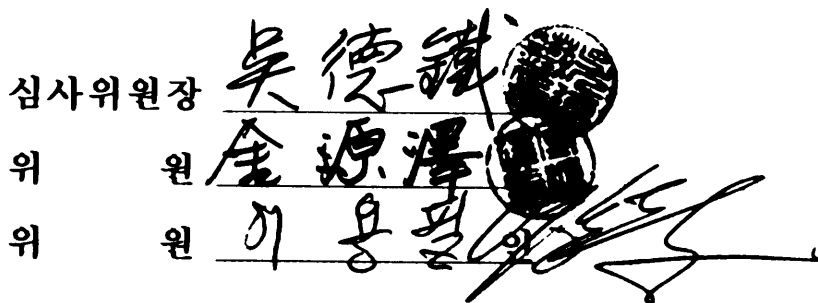 심사위원장 吳德鐵
위 원 金源澤
위 원 이용필 인